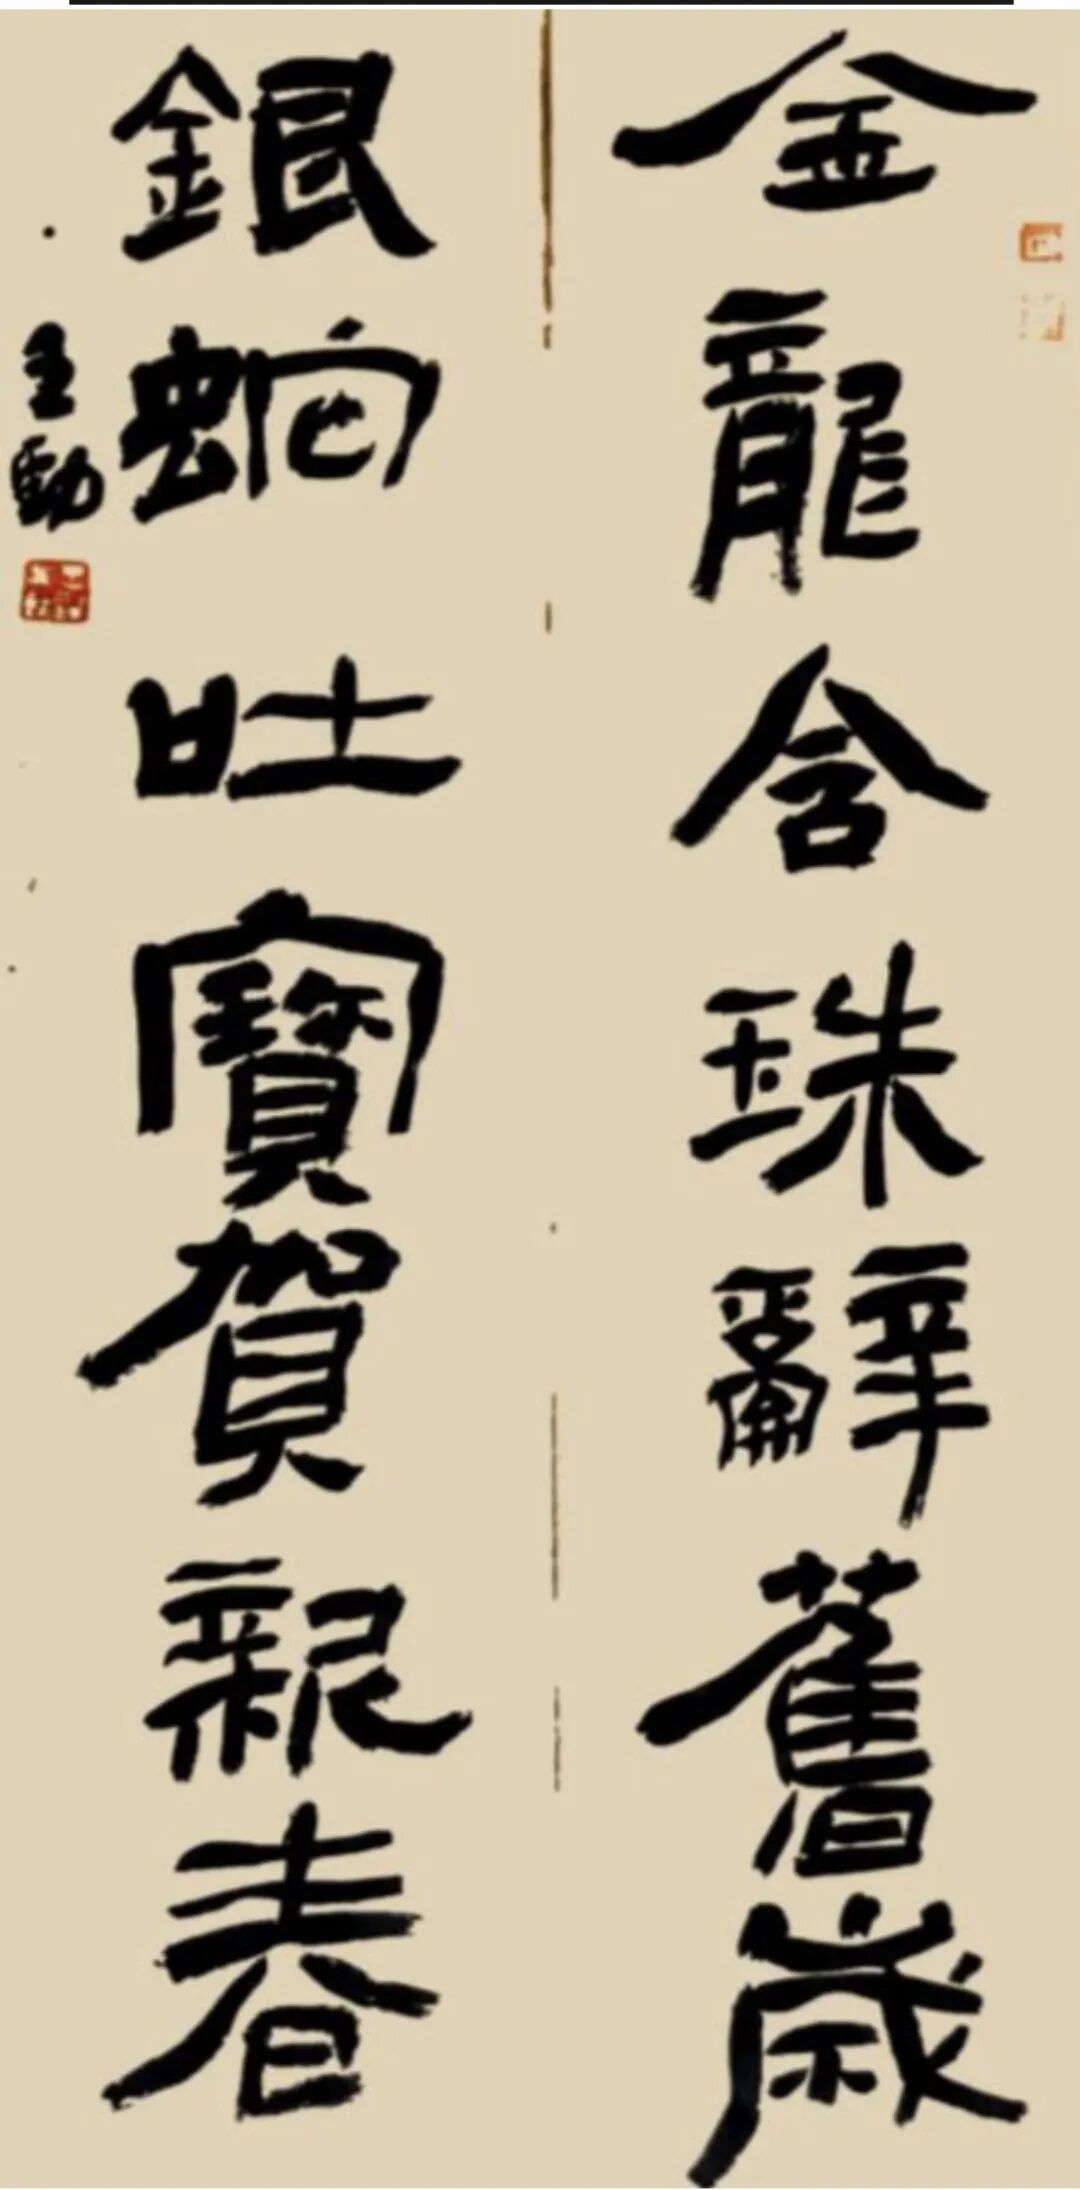 金龍含珠辭舊歲
銀蛇吐寶賀新春
王勁